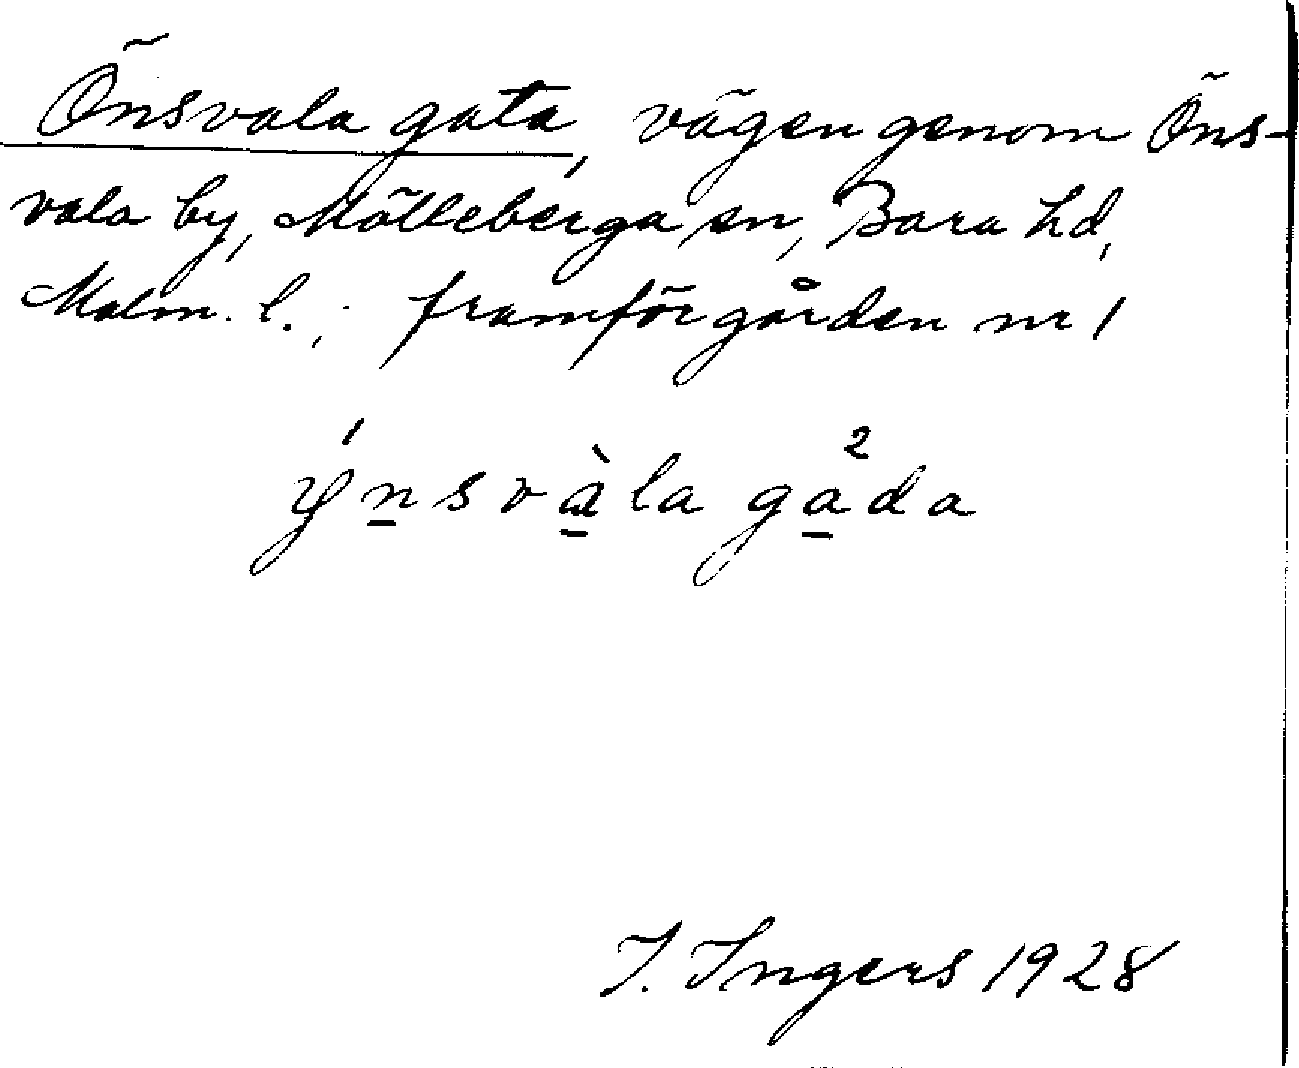 Önsvala gata, vägen genom Öns-
vala by, Mölleberga sn, Bara hd,
Malm. l.; framför gården nr 1
ýnsvàla gada
I. Ingers 1928